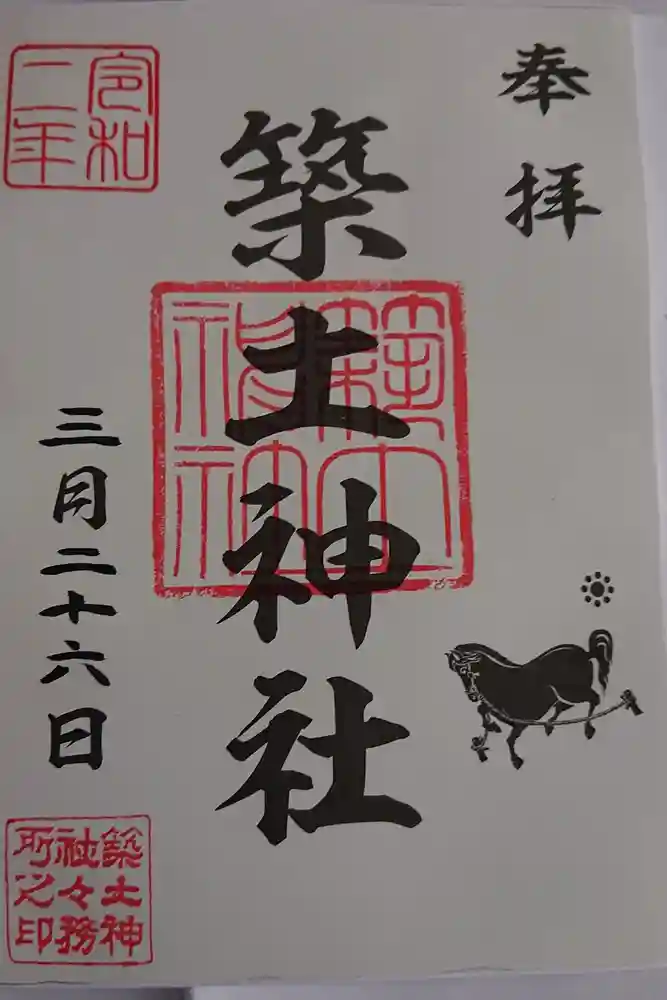 奉拝
築土神社
築土神社
令和
二年
三月二十六日
築土神
社々務
所之印